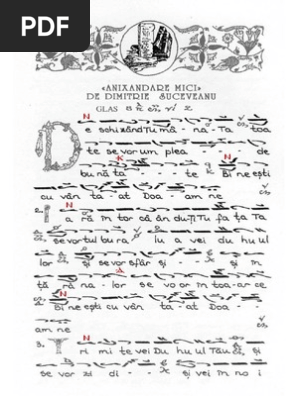 PDF
«ANIXANDARE MICI»
DE DIMITRIE SUCEVEANU
GLAS 8
De schizând Tu mâ - na - Ta toa
te se vor um plea - de
bu nă ta - te Bi ne ești
cu vân ta - at Doa - am ne
2. I a ră în tor când uți Tu fa ța Ta
se vor tul bu ra lu a vei du hu ul
lor și se vor sfâr și și în
ță râ na - lor se vo or în toa - ar ce
Bi ne ești cu vân ta - at Doa -
am ne
3. Tri mi te vei Du hu ul Tău și
se vor zi di - și vei în no i